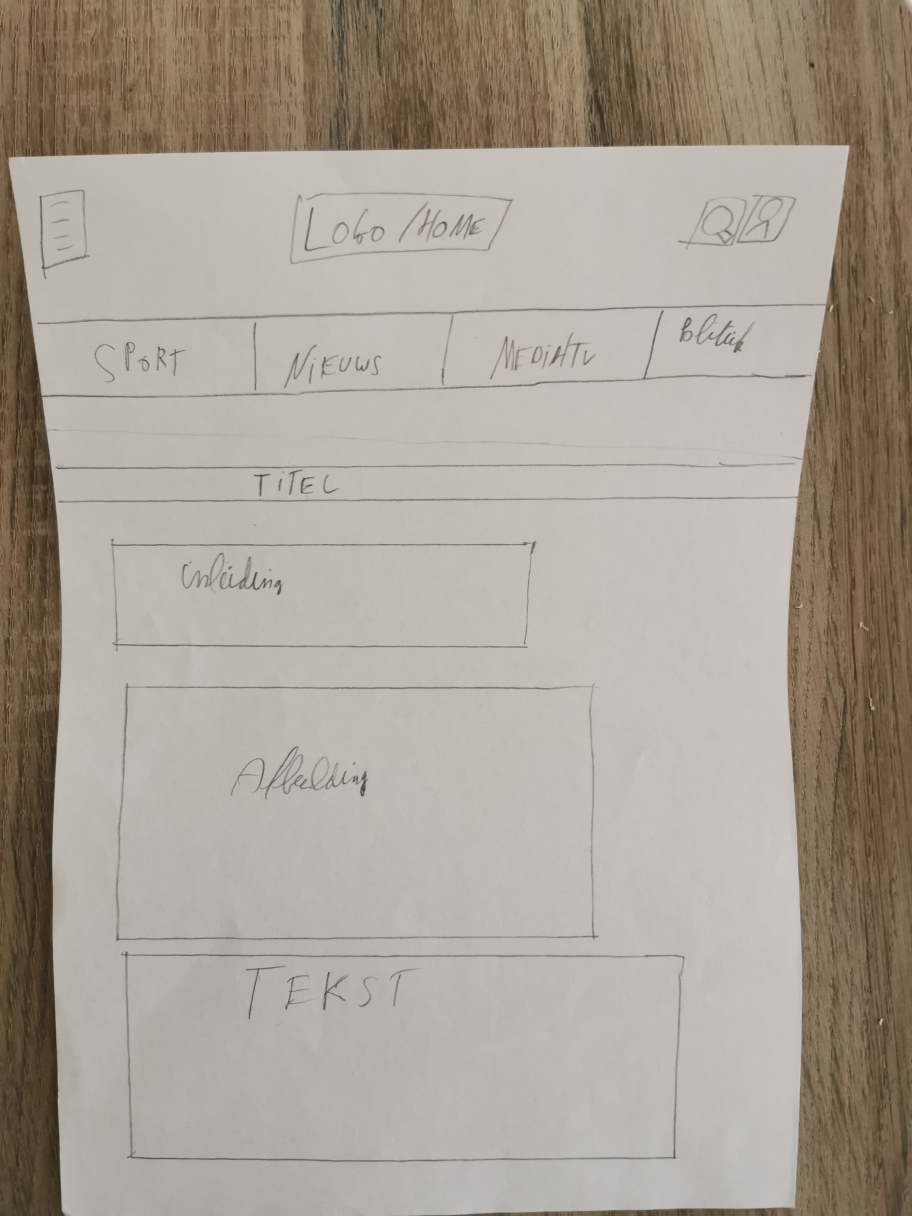 LOGO/HOME
SPORT NiEUWS MEDiATV Politiek
TiTEL
inleiding
Afbeelding
TEKST